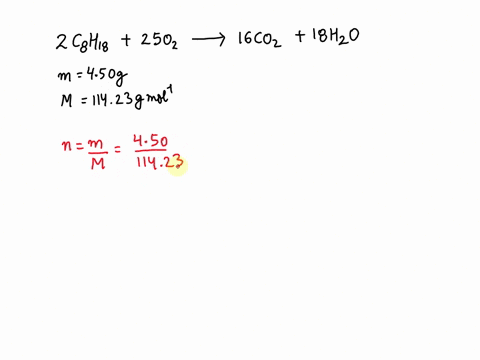 2C₈H₁₈ + 25O₂ ⟶ 16CO₂ + 18H₂O
m = 4.50g
M = 114.23 g mol⁻¹
n = m/M = 4.50/114.23